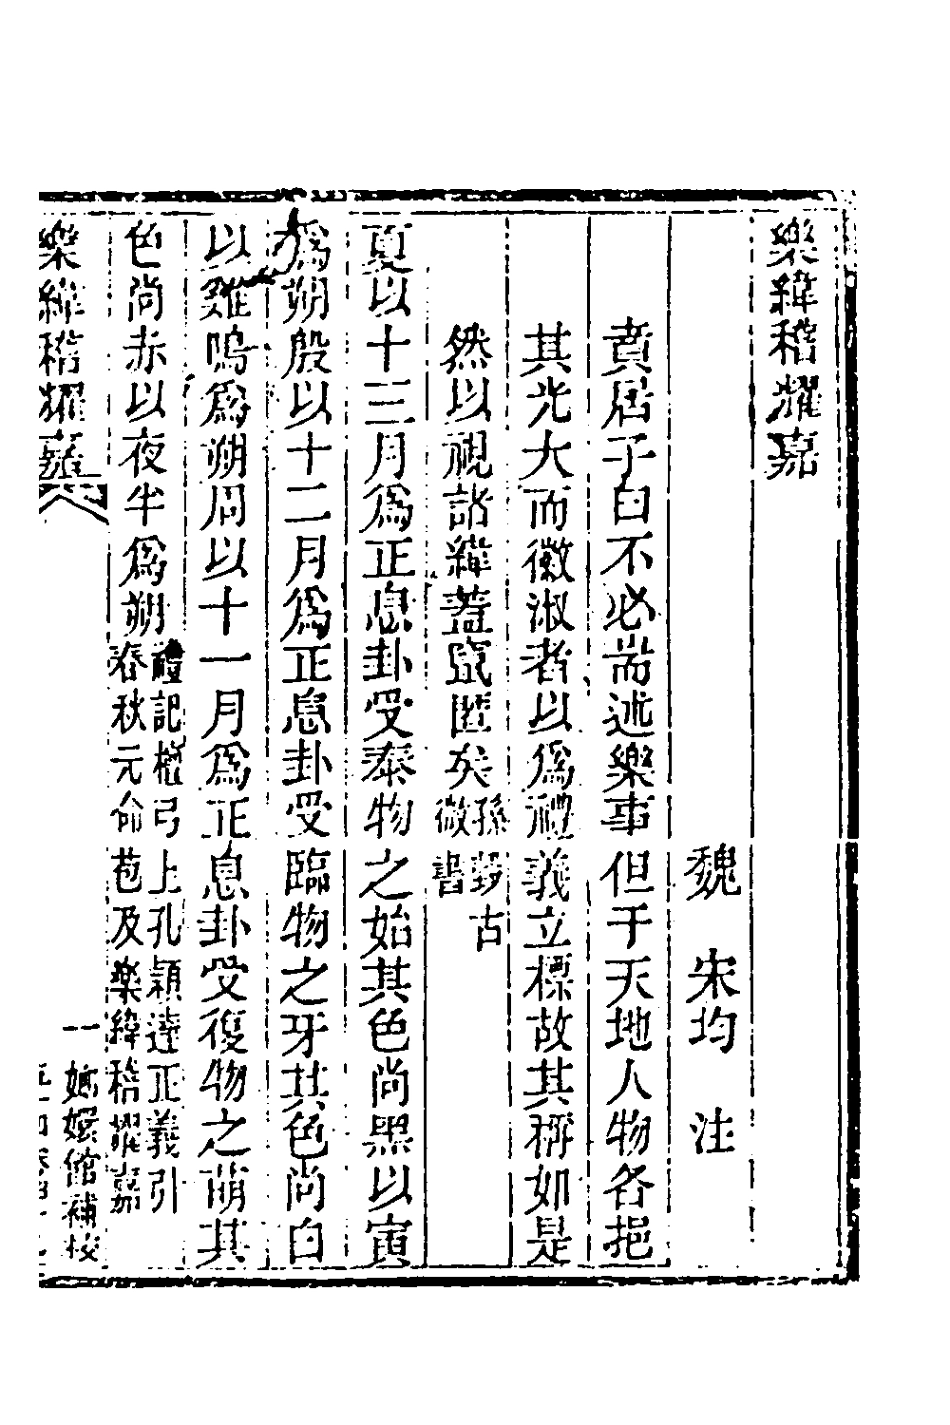 樂緯稽耀嘉
魏　宋均　注
賁居子曰不必耑述樂事但于天地人物各挹
其光大而徽淑者以爲禮義立標故其稱如是
然以視諸緯蓋寔匪矣孫瑴古微書
夏以十三月爲正息卦受泰物之始其色尚黑以寅
爲朔殷以十二月爲正息卦受臨物之牙其色尚白
以雞鳴爲朔周以十一月爲正息卦受復物之萌其
色尚赤以夜半爲朔禮記檀弓上孔穎達正義引
春秋元命苞及樂緯稽耀嘉
樂緯稽耀嘉
一　嫏嬛館補校